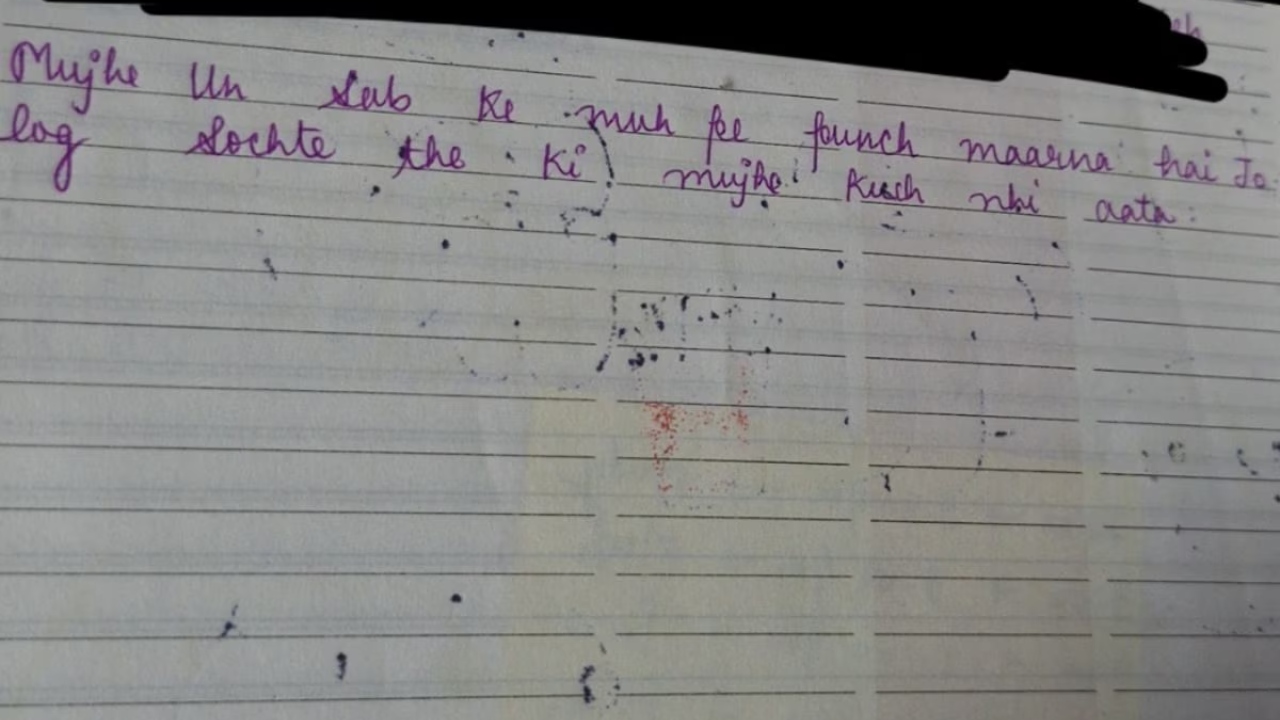 Mujhe Un sab ke muh pe punch maarna hai Jo
log sochte the ki mujhe kuch nhi aata.